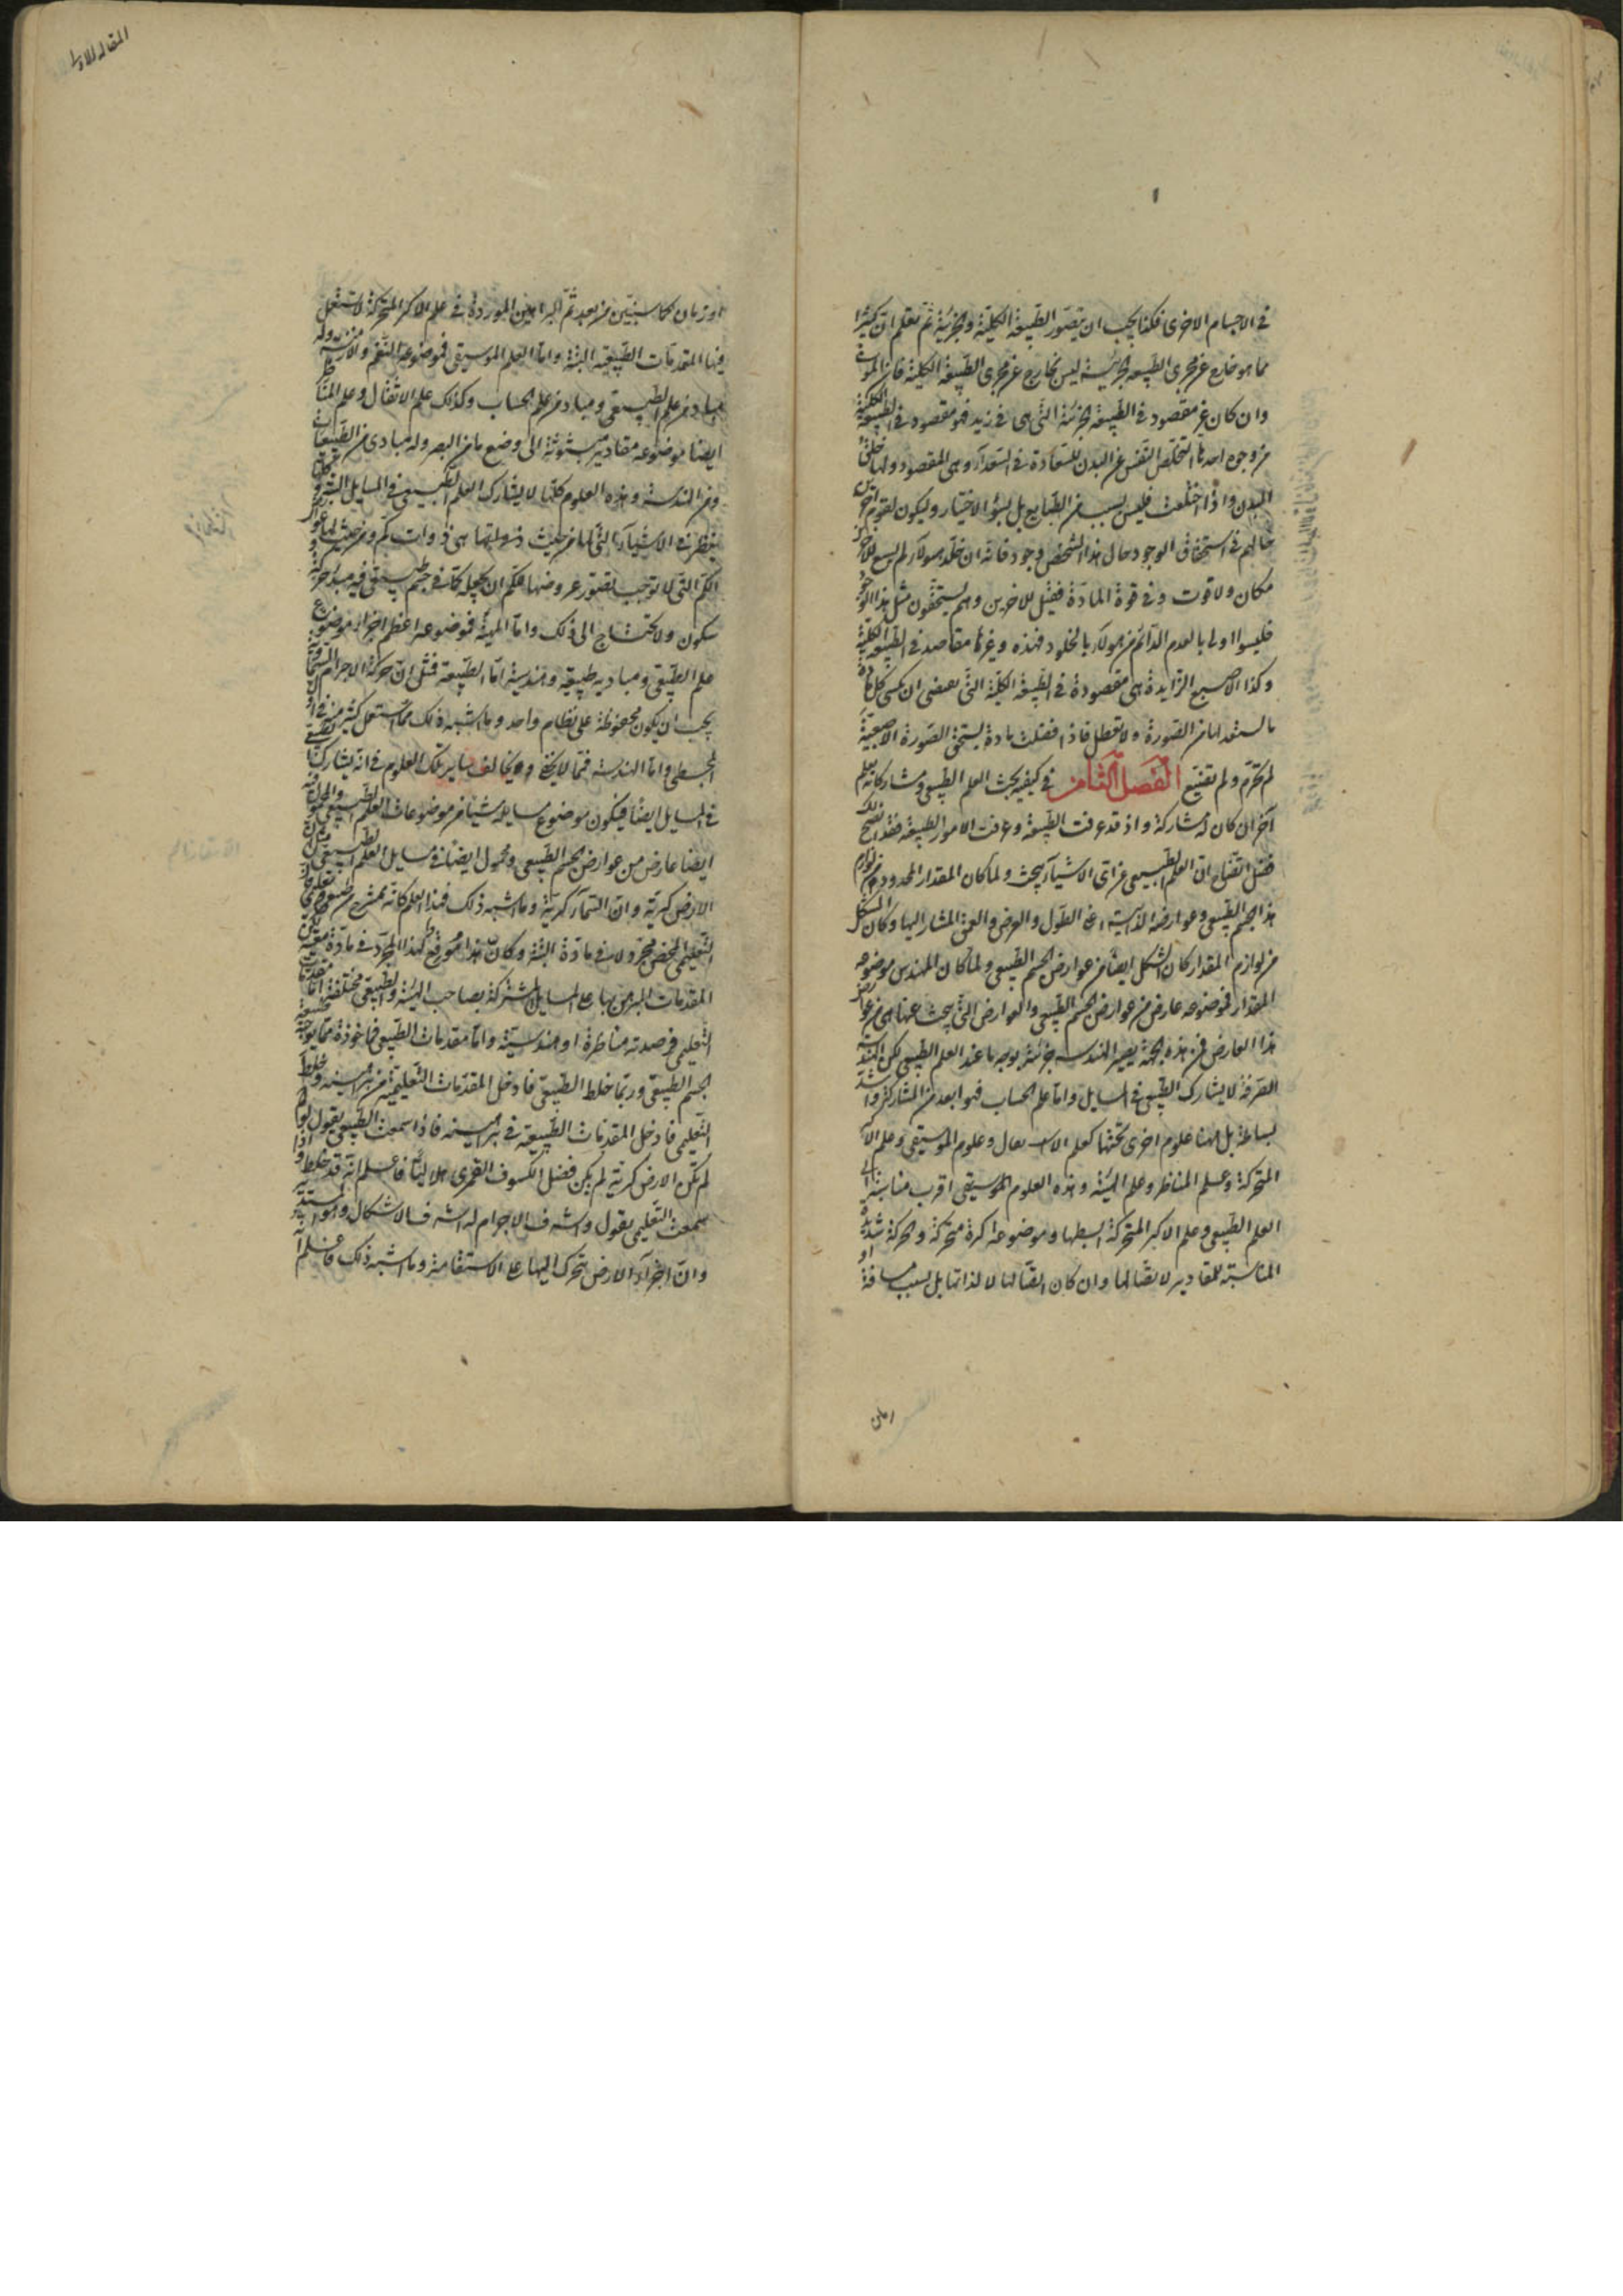 في الاجسام الاخرى فكذا يجب ان يتصور الطبيعة الكلية والجزئية ثم تعلم ان كثيرا
مما هو خارج عن مجرى الطبيعة الجزئية ليس بخارج عن مجرى الطبيعة الكلية فان الموت
وان كان غير مقصود في الطبيعة الجزئية التي هي في زيد فهو مقصود في الطبيعة الكلية
من وجوه احدها لتخلص النفس عن البدن للسعادة في السعدآء وهي المقصود ولها خلق
البدن واذا اختلفت فليس بسبب من الطبايع بل لسوء الاختيار وليكون لقوم آخرين
حالهم في استحقاق الوجود حال هذا الشخص وجود فانه ان خلد هولآء لم يسع للآخرين
مكان ولا قوت وفي قوة المادة فضل للاخرين وهم يستحقون مثل هذا الوجود
فليسوا اولى بالعدم الدائم من هولآء بالخلود فهذه وغيرها مقاصد في الطبيعة الكلية
وكذا الاصبع الزايدة هي مقصودة في الطبيعة الكلية التي تقتضي ان تكسى كل مادة
ما تستعد لها من الصورة ولا تعطل فاذا فضلت مادة تستحق الصورة الاصبعية
لم تحرم ولم تضيع الفصل الثامن في كيفية بحث العلم الطبيعي ومشاركاته لعلم
آخر ان كان له مشاركة واذ قد عرفت الطبيعة وعرفت الامور الطبيعية فقد اتضح لك
فضل اتضاح ان العلم الطبيعي عن اي الاشيآء يبحث ولما كان المقدار المحدود من لوازم
هذا الجسم الطبيعي وعوارضه الذاتية اعني الطول والعرض والعمق المشار اليها وكان الشكل
من لوازم المقدار كان الشكل ايضا من عوارض الجسم الطبيعي ولما كان المهندس موضوعه
المقدار فموضوعه عارض من عوارض الجسم الطبيعي والعوارض التي يبحث عنها هي من عوارض
هذا العارض فمن هذه الجهة يصير الهندسة جزئية بوجه ما عند العلم الطبيعي لكن الهندسة
الصرفة لا يشارك الطبيعي في المسايل واما علم الحساب فهو ابعد من المشاركة واشد
بساطة بل ههنا علوم اخرى تحتها كعلم الاثقال وعلوم الموسيقى وعلم الاكر
المتحركة وعلم المناظر وعلم الهيئة وهذه العلوم الموسيقى اقرب مناسبة الى
العلم الطبيعي وعلم الاكر المتحركة ابسطها وموضوعها كرة متحركة والحركة شديدة
المناسبة للمقادير لاتصالها وان كان اتصالها لا لذاتها بل بسبب مسافة او
زمان
المقالة الاولى
او زمان كما سنبين من بعد ثم البراهين الموردة في علم الاكر المتحركة لا تستعمل
فيها المقدمات الطبيعية البتة واما العلم الموسيقى فموضوعه النغم والازمنة وله
مباد من علم الطبيعي ومباد من علم الحساب وكذلك علم الاثقال وعلم المناظر
ايضا موضوعه مقادير منسوبة الى وضع ما من البصر وله مبادي من الطبيعيات
ومن الهندسة وهذه العلوم كلها لا يشارك العلم الطبيعي في المسايل البتة وكلها
ينظر في الاشيآء التي لها من حيث هي ذوات كم ومن حيث لها عوارض
الكم التي لا توجب تصور عروضها لكم ان يجعله كما في جسم طبيعي فيه مبدء حركة و
سكون ولا تحتاج الى ذلك واما الهيئة فموضوعها اعظم اجزاء موضوع
علم الطبيعي ومباديه طبيعية وهندسية اما الطبيعة فمثل ان حركة الاجرام السماوية
يجب ان يكون محفوظة على نظام واحد وما اشبه ذلك مما استعمل كثير منه في اول
المجسطي واما الهندسة فمما لا يخفى ويخالف ساير تلك العلوم في انه يشارك الطبيعي
في المسايل ايضا فيكون موضوع مسايله شيئا من موضوعات العلم الطبيعي والمحمول فيه
ايضا عارض من عوارض الجسم الطبيعي ومحمول ايضا في مسايل العلم الطبيعي مثل ان
الارض كرية وان السمآء كرية وما اشبه ذلك فهذا العلم كانه ممتزج من طبيعي وتعليمي كان
التعليمي المحض مجرد لا في مادة البتة وكان هذا موقع لهذا المجرد في مادة معينة لكن
المقدمات المبرهن بها على المسايل المشتركة بصاحب الهيئة والطبيعي مختلفة اما مقدمات
التعليمي فرصدية مناظرة او هندسية واما مقدمات الطبيعي فماخوذة مما يوجبه طبيعة
الجسم الطبيعي وربما خلط الطبيعي فادخل المقدمات التعليمية في براهينه وخلط
التعليمي فادخل المقدمات الطبيعية في براهينه فاذا سمعت الطبيعي يقول لو لم
لم تكن الارض كرية لم يكن فضل الكسوف القمري هلاليا فاعلم انه قد خلط واذا
سمعت التعليمي يقول واشرف الاجرام له اشرف الاشكال وهو المستدير
وان اجزآء الارض تتحرك اليها على الاستقامة وما اشبه ذلك فاعلم انه